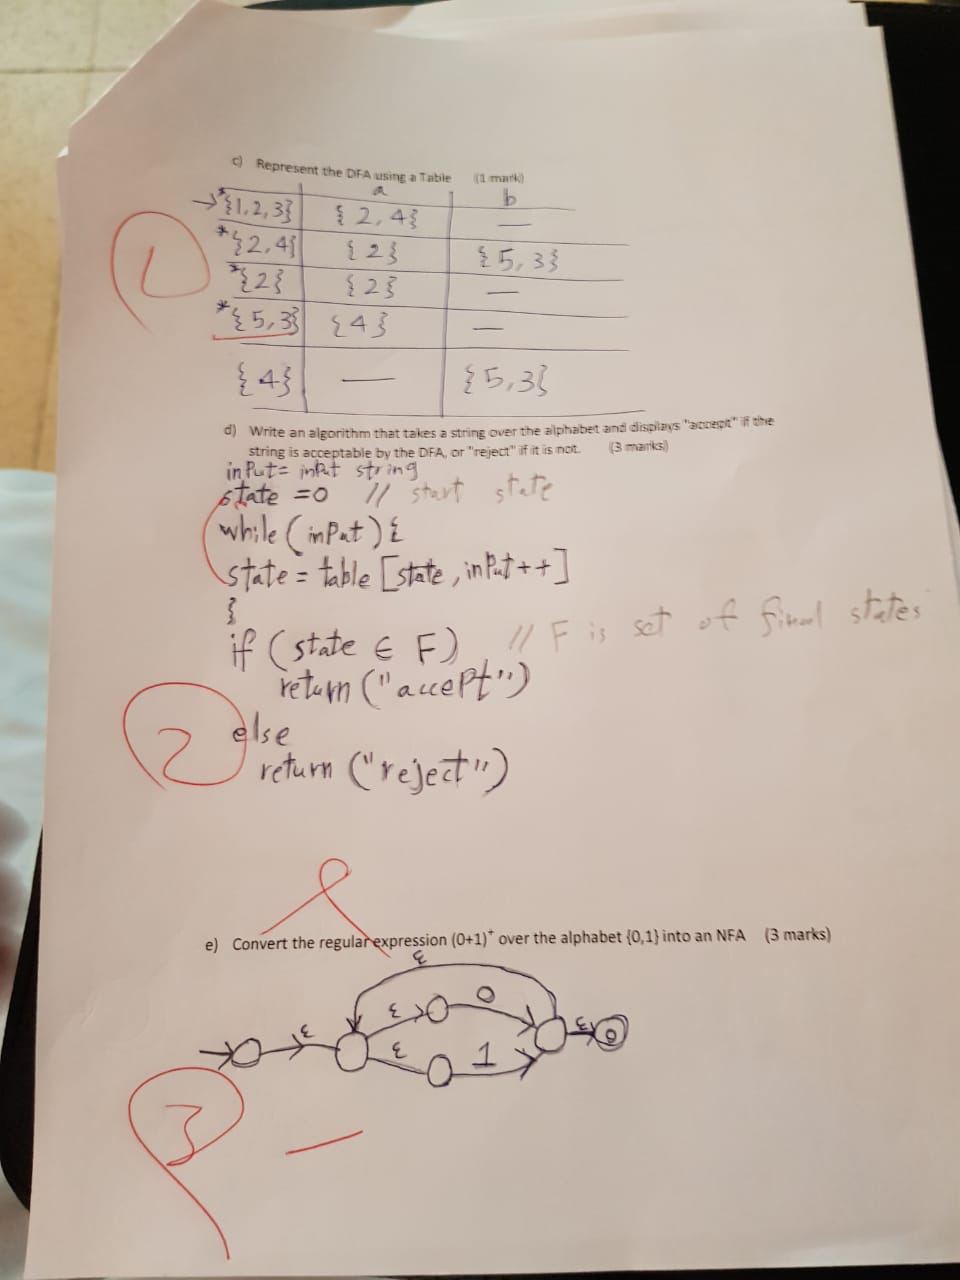 c) Represent the DFA using a Table (1 mark)
a b
→*{1,2,3} {2,4} —
*{2,4} {2} {5,3}
*{2} {2} —
*{5,3} {4} —
{4} — {5,3}
1
d) Write an algorithm that takes a string over the alphabet and displays "accept" if the
string is acceptable by the DFA, or "reject" if it is not. (3 marks)
inPut = inPut string
state = 0 // start state
while (inPut) {
state = table [state, inPut++]
}
if (state ∈ F) // F is set of final states
return ("accept")
else
return ("reject")
2
e) Convert the regular expression (0+1)⁺ over the alphabet {0,1} into an NFA (3 marks)
ε
ε 0
ε ε
ε 1
3